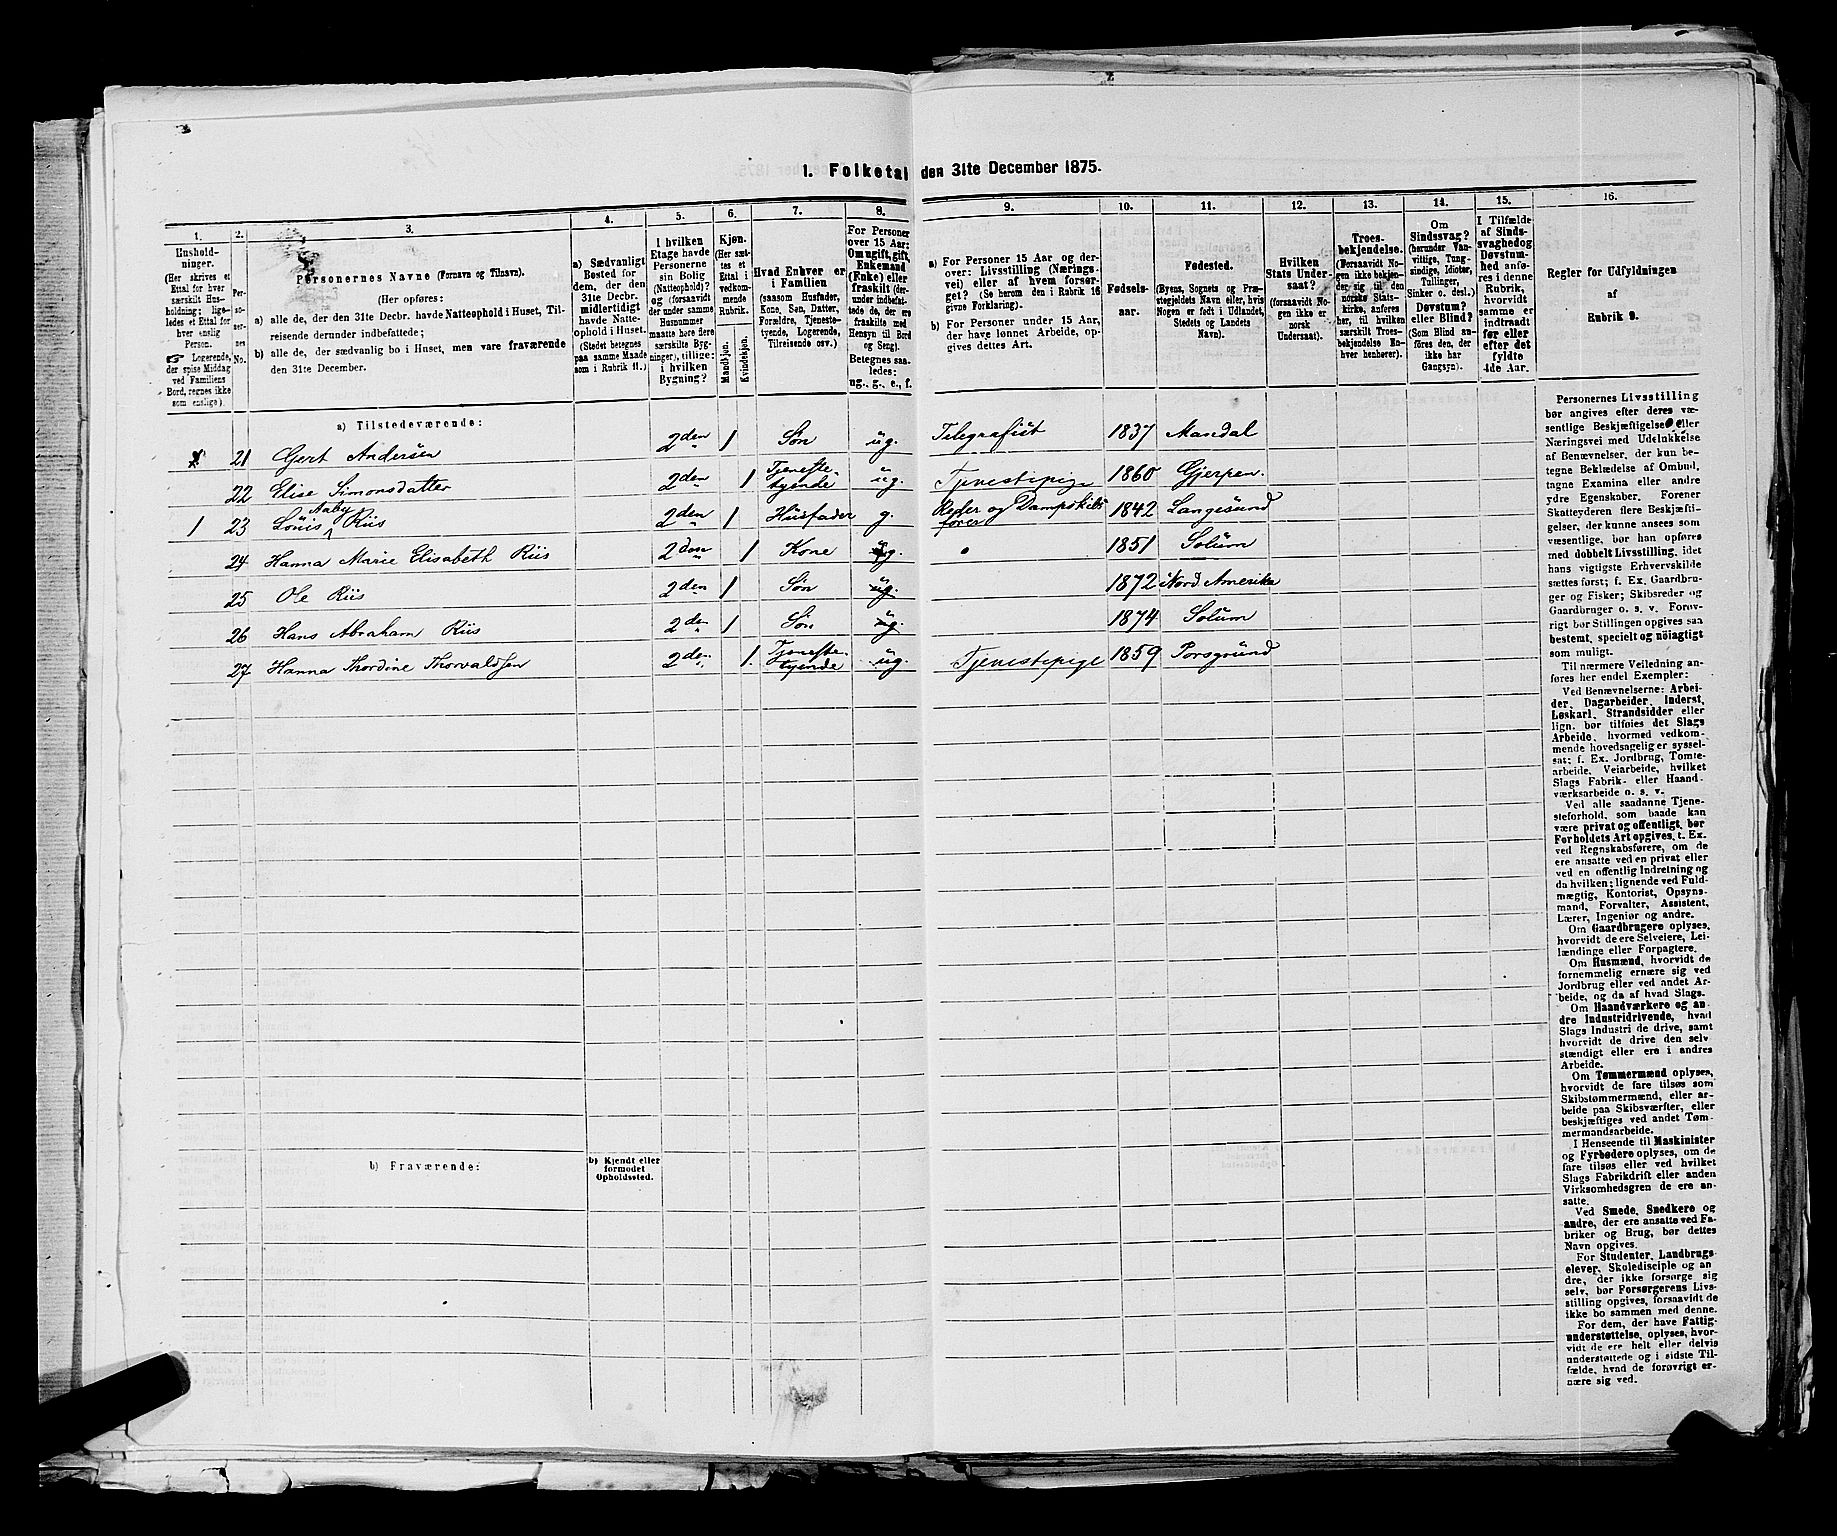 1. Folketal den 31te December 1875.
1.
2.
3.
4.
5.
6.
7.
8.
9.
10.
11.
12.
13.
14.
15.
16.
Husholdninger.
(Her skrives et
Ettal for hver
særskilt Husholdning;
ligeledes et Ettal for
hver enslig
Person.
☞ Logerende,
der spise Middag
ved Familiens
Bord, regnes ikke
som enslige).
Personernes No.
Personernes Navne (Fornavn og Tilnavn).
(Her opføres:
a) alle de, der den 31te Decbr. havde Natteophold i Huset, Tilreisende
derunder indbefattede;
b) alle de, der sædvanlig bo i Huset, men vare fraværende
den 31te December.
a) Sædvanligt
Bosted for
dem, der den
31te Decbr.
midlertidigt
havde Natteophold
i Huset.
(Stedet betegnes
paa samme Maade
som i Rubrik 11.)
I hvilken
Etage havde
Personerne
sin Bolig
(Natteophold)?
og (forsaavidt
der under samme
Husnummer
maatte høre flere
særskilte Bygninger),
tillige:
i hvilken
Bygning?
Kjøn.
(Her sættes
et
Ettal i
vedkommende
Rubrik.
Mandkjøn.
Kvindekjøn.
Hvad Enhver er
i Familien
(saasom Husfader,
Kone, Søn, Datter,
Forældre, Tjenestetyende,
Logerende,
Tilreisende osv.)
For Personer
over 15 Aar:
Om ugift, gift,
Enkemand
(Enke) eller
fraskilt (derunder
indbefattede
de, der ere
fraskilte med
Hensyn til Bord
og Seng).
Betegnes saaledes:
ug., g., e., f.
a) For Personer 15 Aar og derover:
Livsstilling (Næringsvei)
eller af hvem forsørget?
(Se herom den i Rubrik 16
givne Forklaring).
b) For Personer under 15 Aar,
der have lønnet Arbeide, opgives
dettes Art.
Fødselsaar.
Fødested.
(Byens, Sognets og Præstegjeldets
Navn eller, hvis
Nogen er født i Udlandet,
Stedets og Landets
Navn).
Hvilken
Stats Undersaat?
(forsaavidt Nogen
ikke er
norsk
Undersaat).
Troesbekjendelse.
(Forsaavidt Nogen
ikke bekjender
sig til den
norske Statskirke,
anføres
her, til hvilken
særskilt Troesbekjendelse
Enhver
henhører).
Om
Sindssvag?
(herunder Vanvittige,
Tungsindige,
Idioter,
Tullinger,
Sinker o. desl.)
Døvstum?
eller Blind?
(Som Blind anføres
den, der
ikke har
Gangsyn).
I Tilfælde
af Sindssvaghed
og
Døvstumhed
anføres
i denne
Rubrik,
hvorvidt
samme er
indtraadt
før eller
efter det
fyldte
4de Aar.
Regler for Udfyldningen
af
Rubrik 9.
a) Tilstedeværende:
21 Gert Andersen 2den 1 Søn ug. Telegrafist 1837 Mandal
22 Elise Simonsdatter 2den 1 Tjenestetyende ug. Tjenestepige 1860 Gjerpen.
1 23 Louis Aaby Riis 2den 1 Husfader g. Reder og Dampskibsfører 1842 Langesund
24 Hanna Marie Elisabeth Riis 2den 1 Kone g. 1851 Solum
25 Ole Riis 2den 1 Søn ug. 1872 Nord Amerika
26 Hans Abraham Riis 2den 1 Søn ug. 1874 Solum
27 Hanna Thordine Thorvaldsen 2den 1. Tjenestetyende ug. Tjenestepige 1859 Porsgrund
b) Fraværende:
b) Kjendt eller
formodet
Opholdssted.
Personernes Livsstilling
bør angives efter deres væsentlige
Beskjæftigelse eller
Næringsvei med Udelukkelse
af Benævnelser, der kun betegne
Beklædelse af Ombud,
tagne Examina eller andre
ydre Egenskaber. Forener
Skatteyderen flere Beskjæftigelser,
der kunne ansees som
væsentlige, bør han opføres
med dobbelt Livsstilling, idet
hans vigtigste Erhvervskilde
sættes først; f. Ex. Gaardbruger
og Fisker; Skibsreder og
Gaardbruger o. s. v. Forøvrigt
bør Stillingen opgives saa
bestemt, specielt og nöiagtigt
som muligt.
Til nærmere Veiledning anføres
her endel Exempler:
Ved Benævnelserne: Arbeider,
Dagarbeider, Inderst,
Løskarl, Strandsidder eller
lign. bør tilføies det Slags
Arbeide, hvormed vedkommende
hovedsagelig er sysselsat;
f. Ex. Jordbrug, Tomtearbeide,
Veiarbeide, hvilket
Slags Fabrik- eller Haandværksarbeide
o. s. v.
Ved alle saadanne Tjenesteforhold,
som baade kan
være privat og offentligt, bør
Forholdets Art opgives, t. Ex.
ved Regnskabsførere, om de
ere ansatte ved en privat eller
ved en offentlig Indretning og
da hvilken; lignende ved Fuldmægtig,
Kontorist, Opsynsmand,
Forvalter, Assistent,
Lærer, Ingeniør og andre.
Om Gaardbrugere oplyses,
hvorvidt de ere Selveiere, Leilændinge
eller Forpagtere.
Om Husmænd, hvorvidt de
fornemmelig ernære sig ved
Jordbrug eller ved andet Arbeide,
og da af hvad Slags.
Om Haandværkere og andre
Industridrivende, hvad
Slags Industri de drive, samt
hvorvidt de drive den selvstændigt
eller ere i andres
Arbeide.
Om Tømmermænd oplyses,
hvorvidt de fare tilsøs som
Skibstømmermænd, eller arbeide
paa Skibsværfter, eller
beskjæftiges ved andet Tømmermandsarbeide.
I Henseende til Maskinister
og Fyrbødere oplyses, om de
fare tilsøs eller ved hvilket
Slags Fabrikdrift eller anden
Virksomhedsgren de ere ansatte.
Ved Smede, Snedkere og
andre, der ere ansatte ved Fabriker
og Brug, bør dettes
Navn opgives.
For Studenter, Landbrugselever,
Skoledisciple og andre,
der ikke forsørge sig
selv, bør Forsørgerens Livsstilling
opgives, forsaavidt de
ikke bo sammen med denne.
For dem, der have Fattigunderstøttelse,
oplyses, hvorvidt
de ere helt eller delvis
understøttede og i sidste Tilfælde,
hvad de forøvrigt ernære
sig ved.